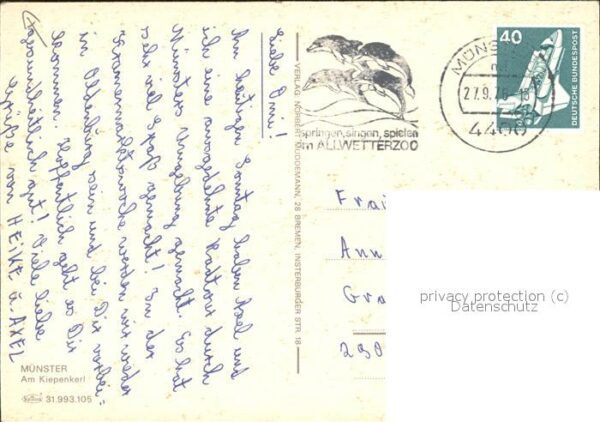 Liebe Omi!
Am heutigen Sonntag haben Axel und
ich eine ausgedehnte Radtour durch
Münsters Umgebung gemacht. Es hat
sehr viel Spaß gemacht! In der
werden wir wieder
in Altenburg sein und bei Dir vorbei-
kommen. Hoffentlich geht es Dir
gesundheitlich gut! Viele liebe
Grüße von HEIKE u. AXEL
MÜNSTER
Am Kiepenkerl
31.993.105
VERLAG NORBERT MUDDEMANN, 28 BREMEN, INSTERBURGER STR. 18
springen, singen, spielen
im ALLWETTERZOO
27.9.76-18
4400
40
DEUTSCHE BUNDESPOST
Ann
290
privacy protection (c)
Datenschutz